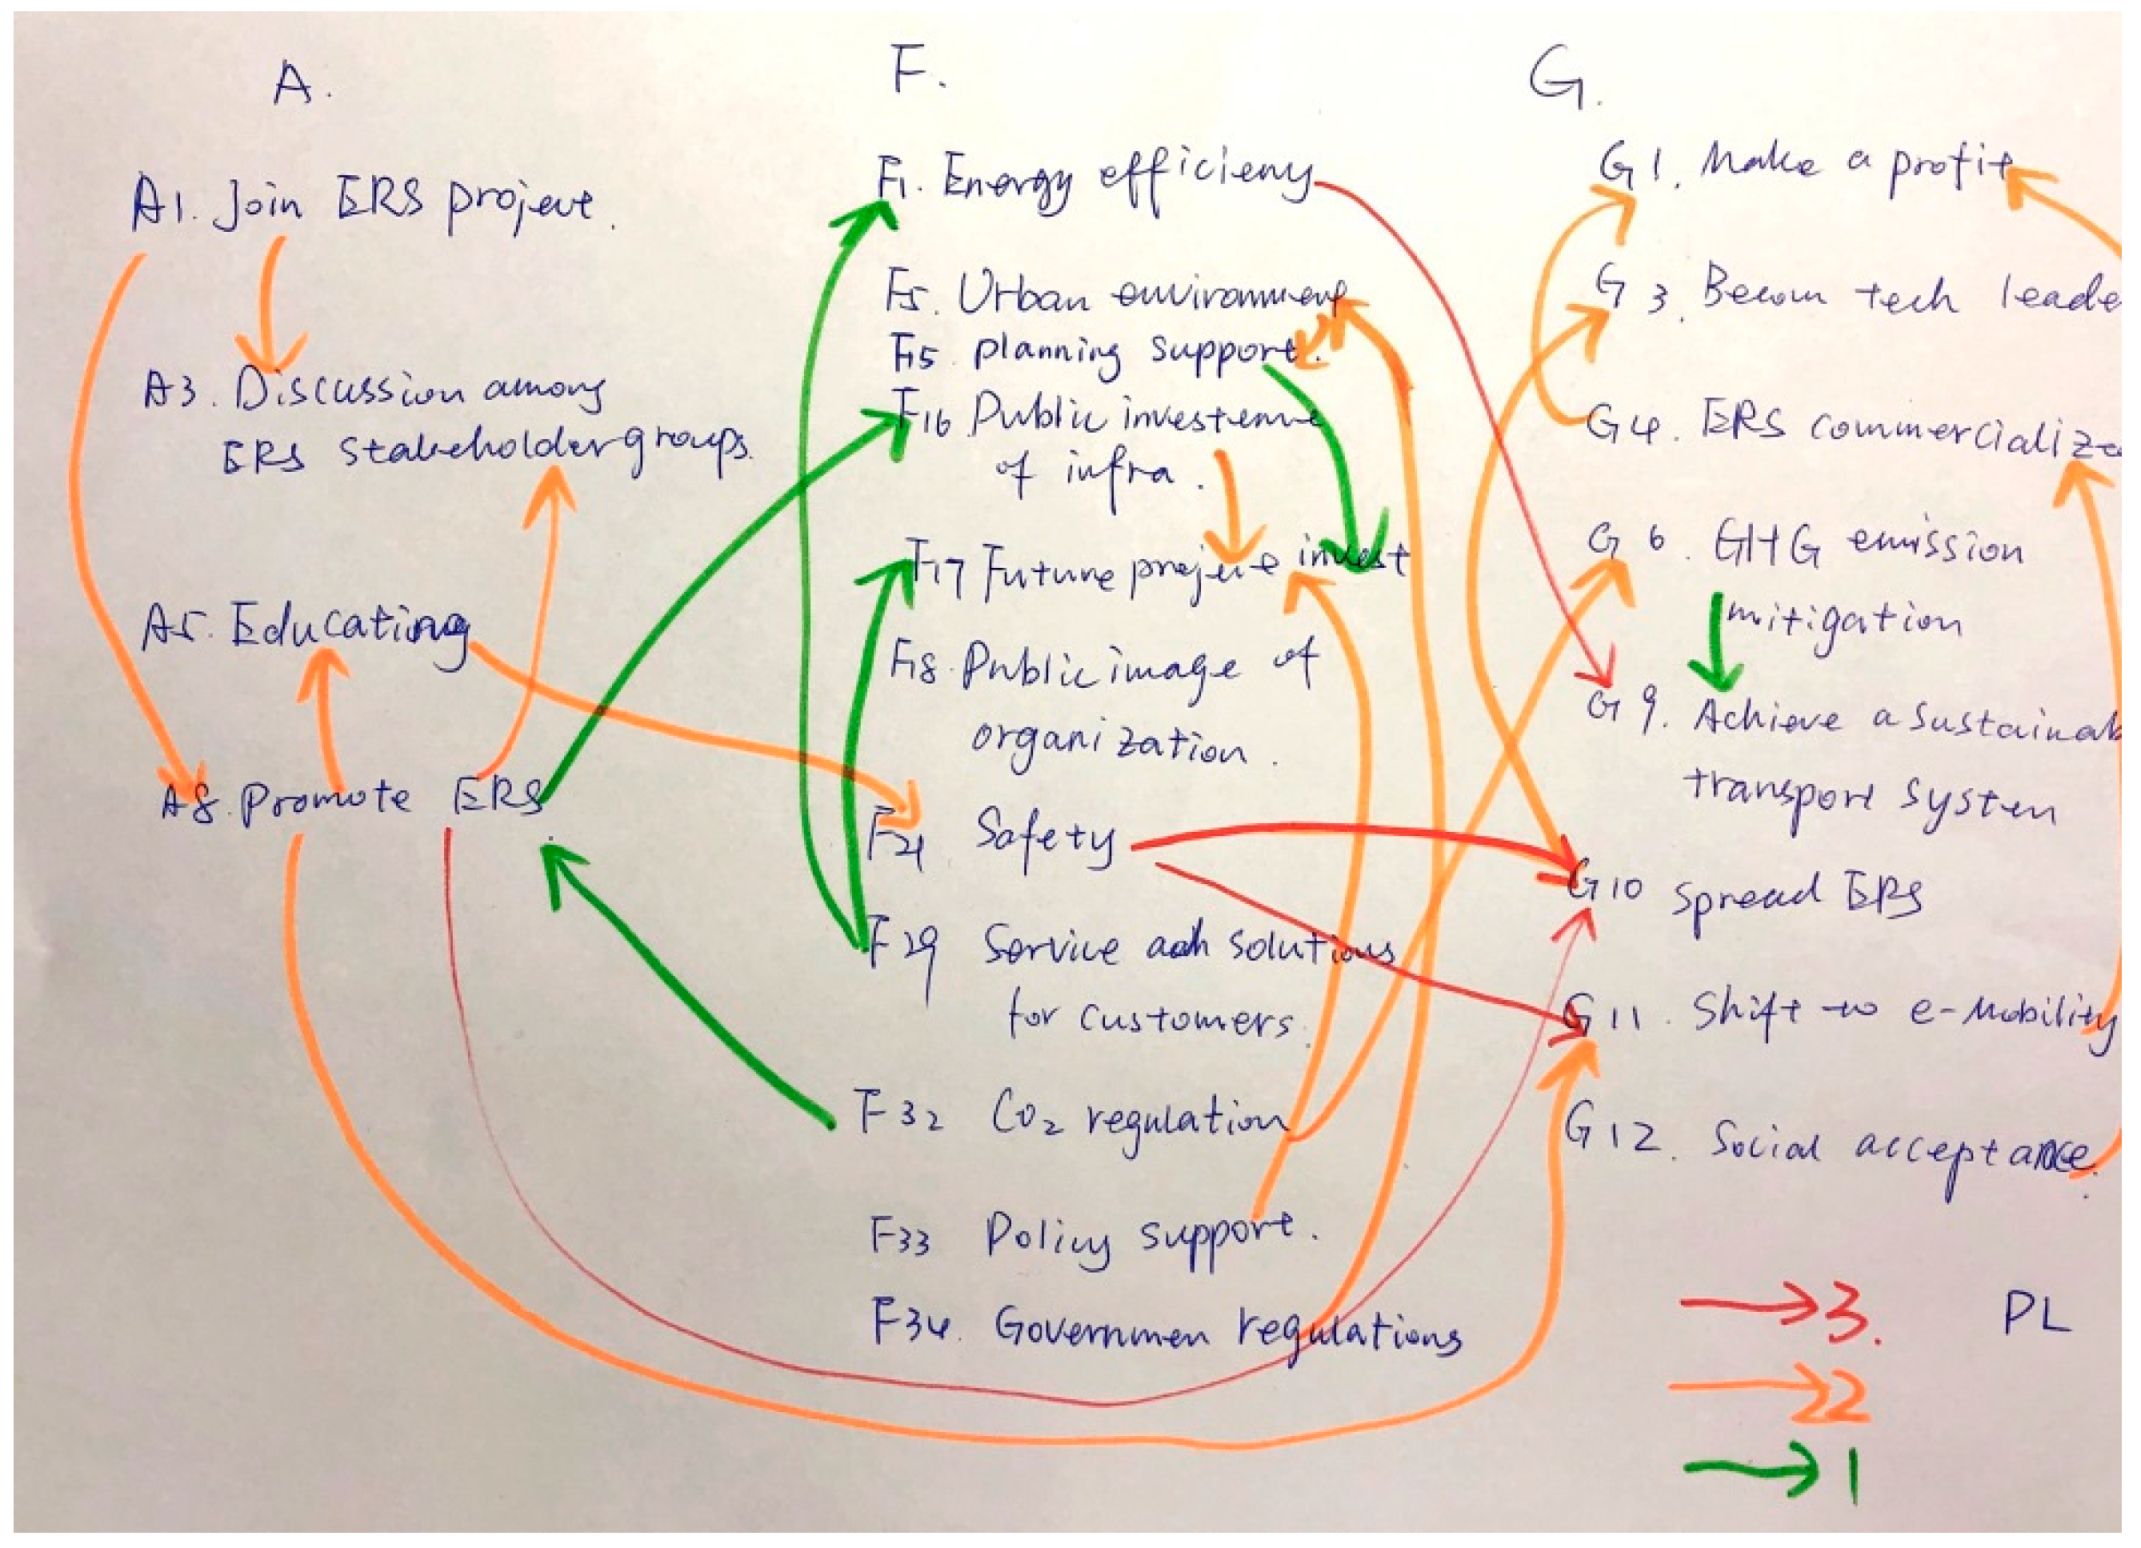 A.
A1. Join ERS project.
A3. Discussion among
ERS stakeholder groups.
A5. Educating
A8. Promote ERS
F.
F1. Energy efficieny
F5. Urban environment
F15 planning support.
F16 Public investeme
of infra.
F17 Future project invest
F18. Public image of
organization.
F21 Safety
F29 Service and solutions
for customers.
F32 CO2 regulation
F33 Policy support.
F34. Governmen regulations
G.
G1. Make a profit
G3. Becom tech leade
G4. ERS commercializa
G6. GHG emission
mitigation
G9. Achieve a sustainab
transport system
G10 spread ERS
G11. Shift to e-Mobility
G12. Social acceptance.
3. PL
2
1